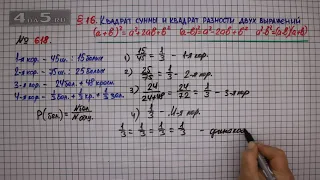 4 da 5.ru
§ 16. Квадрат суммы и квадрат разности двух выражений
(a+b)²=a²+2ab+b² (a-b)²=a²-2ab+b² a²-b²=(a-b)(a+b)
№ 618.
1-я кор. - 45ш. : 15белых
2-я кор. - 75ш. : 25 белых
3-я кор. - 24бел 48красн
4-я кор. - 1/3бел. + 1/3кр. + 1/3зел.
P(бел) = Nбел/Nобщ.
1) 15/45 = 1/3 - 1-я кор.
2) 25/75 = 1/3 - 2-я кор.
3) 24/24+48 = 24/72 = 1/3 - 3-я кор
4) 1/3 - 4-я кор.
1/3 = 1/3 = 1/3 = 1/3 -